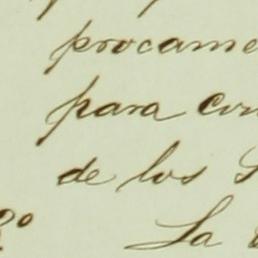 procame
para con
de los S
2º La